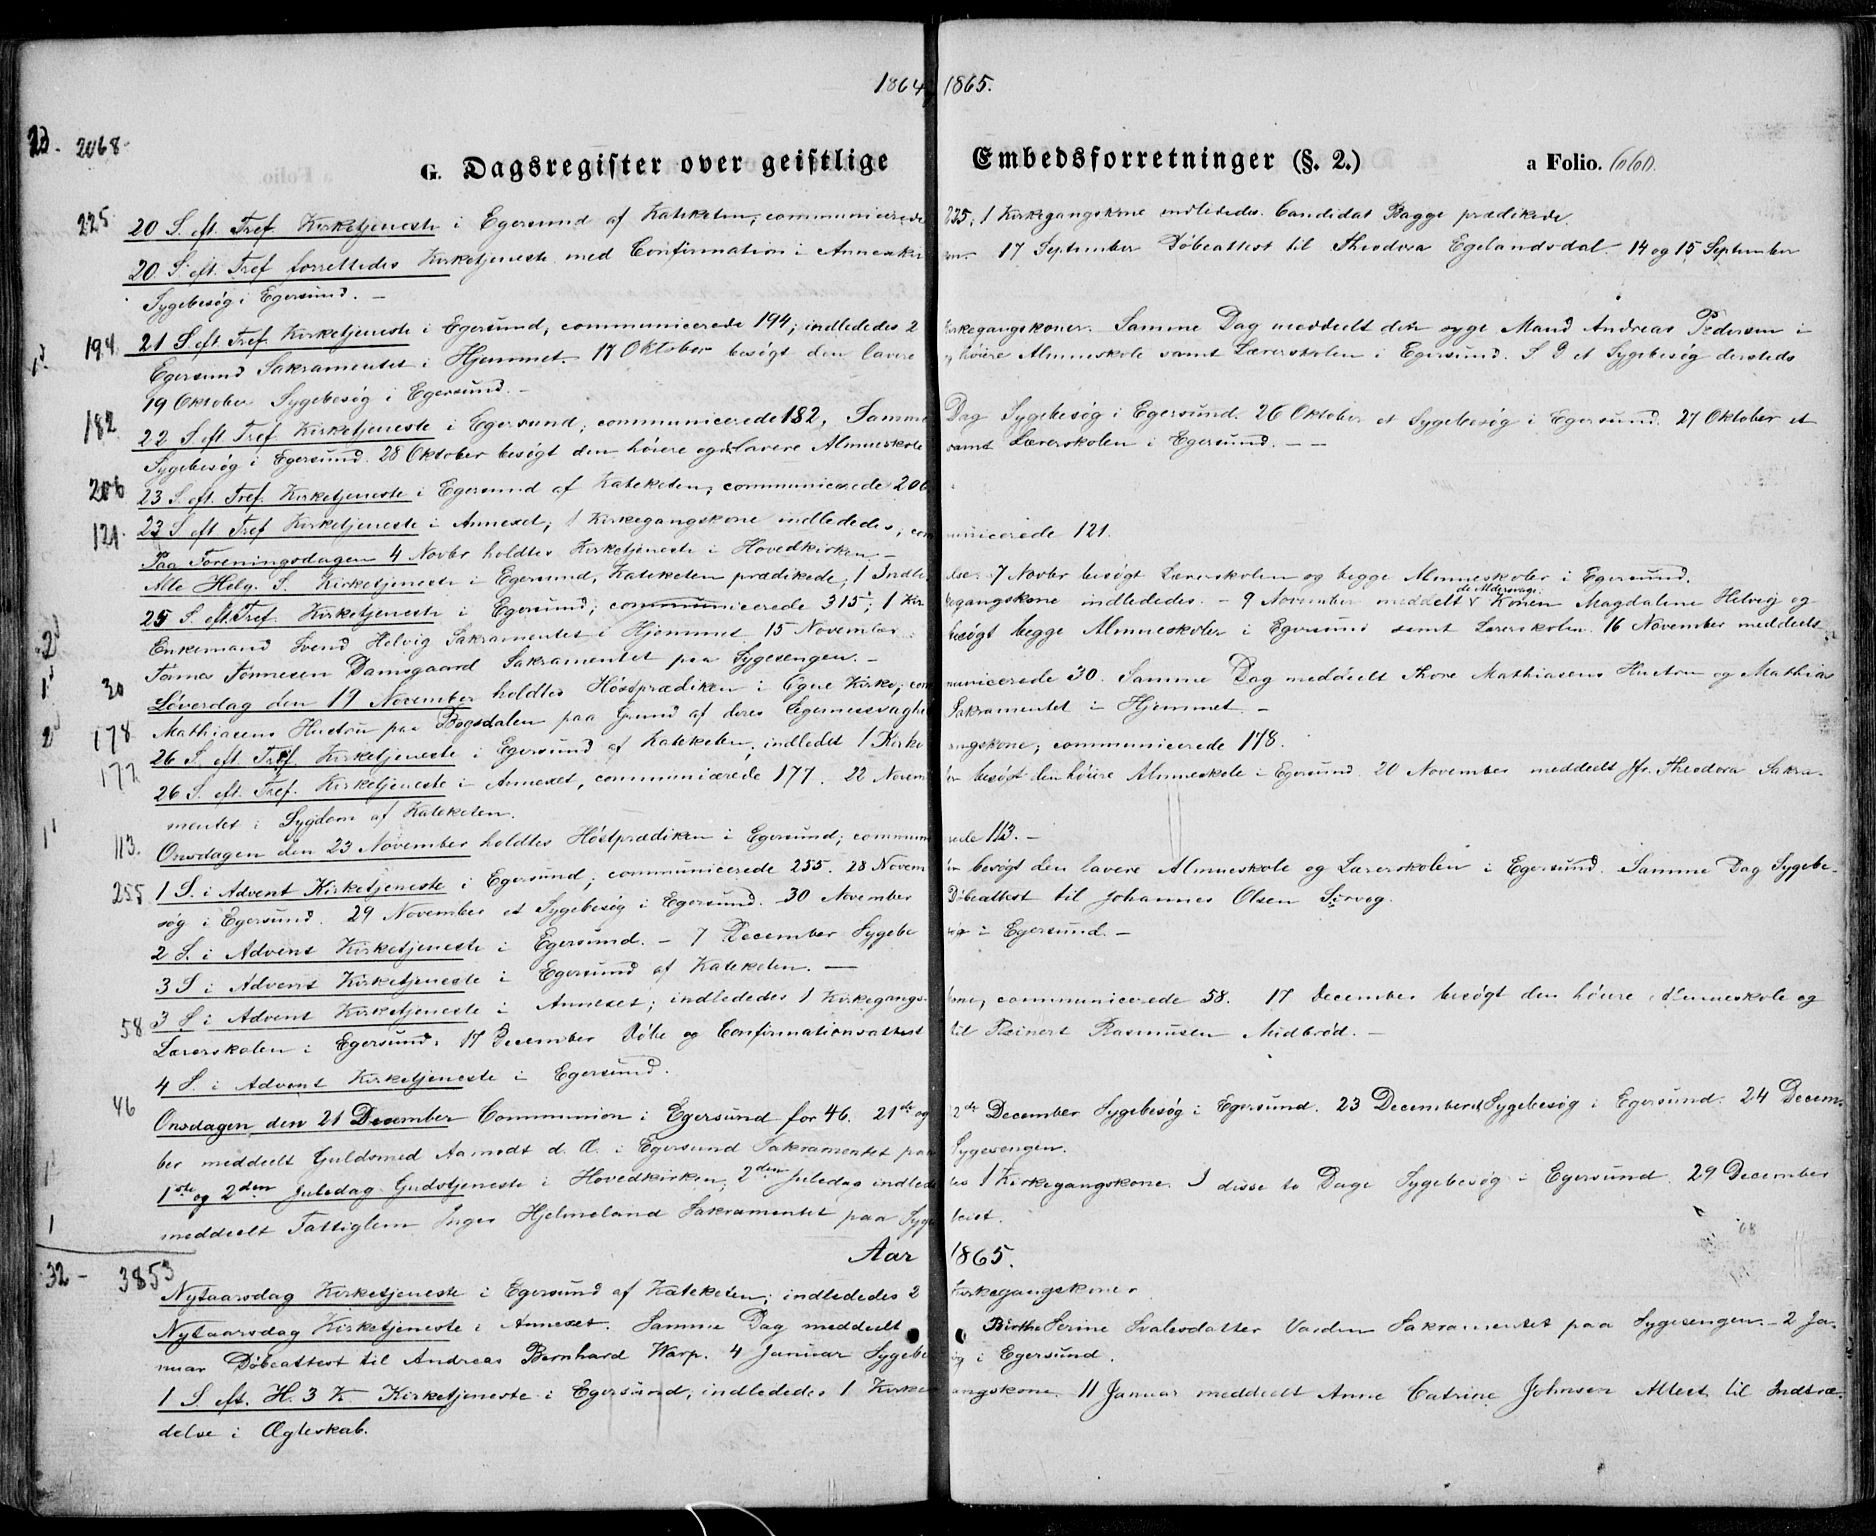 1864, 1865.
23. 2068.
G. Dagsregister over geistlige Embedsforretninger (§. 2.) a Folio. 660.
225 20 S. eft. Tref. Kirketjeneste i Egersund af Kateketen, communicerede 225; 1 Kirkegangskone indlededes. Candidat Bagge prædikede.
20. S. eft. Tref. forrettedes Kirketjeneste med Confirmation i Annexkir 17 September Døbeattest til Theodora Egelandsdal. 14 og 15 September
Sygebesøg i Egersund. –
194. 21 S. eft. Tref. Kirketjeneste i Egersund, communicerede 194; indlededes 2 Kirkegangskoner. Samme Dag meddeelt den syge Mand Andreas Pedersen i
1 Egersund Sakramentet i Hjemmet. 17 Oktober besøgt den lavere høiere Almueskole samt Lærerskolen i Egersund. S. D et Sygebesøg dersteds
19 Oktober Sygebesøg i Egersund. –
182. 22 S. eft. Tref. Kirketjeneste i Egersund; communicerede 182. Samme Dag Sygebesøg i Egersund. 26 Oktober et Sygebesøg i Egersund. 27 Oktober et
Sygebesøg i Egersund. 28 Oktober besøgt den høiere og lavere Almueskole samt Lærerskolen i Egersund. – –
206 23 S. eft. Tref. Kirketjeneste i Egersund af Kateketen; communicerede 206
121. 23 S. eft. Tref. Kirketjeneste i Annexet; 1 Kirkegangskone indlededes, communicerede 121.
Paa Foreningsdagen 4 Novbr holdtes Kirketjeneste i Hovedkirken –
Alle Helg. S. Kirketjeneste i Egersund, Kateketen prædikede; 1 Indledelse. 7 Novbr besøgt Lærerskolen og begge Almueskoler i Egersund.
25 S. eft. Tref. Kirketjeneste i Egersund; communicerede 315; 1 Kirkegangskone indlededes. – 9 November meddelt de Aldersvage Konen Magdalene Helvig og
2 Enkemand Svend Helvig Sakramentet i Hjemmet. 15 November besøgt begge Almueskoler i Egersund samt Lærerskolen. 16 November meddeelt
1 Tønnes Tønnesen Damsgaard Sakramentet paa Sygesengen. –
30 Løverdag den 19 November holdtes Høstprædiken i Ogne Kirke, communicerede 30. Samme Dag meddeelt Thore Mathiasens Hustru og Mathias
2 Mathiasens Hustru paa Bogsdalen paa Grund af deres Legemssvaghed Sakramentet i Hjemmet. –
178 26 S. eft. Tref. Kirketjeneste i Egersund af Kateketen, indledet 1 Kirkegangskone; communicerede 178.
177 26 S. eft. Tref. Kirketjeneste i Annexet, communicerede 177. 22 November besøgt den høiere Almueskole i Egersund. 20 November meddeelt Jfr. Theodora Sakra-
1 mentet i Sygdom af Kateketen.
113. Onsdagen den 23 November holdtes Høstprædiken i Egersund; communicerede 113. –
255 1 S. i Advent Kirketjeneste i Egersund; communicerede 255. 28 November besøgt den lavere Almueskole og Lærerskolen i Egersund. Samme Dag Sygebe-
søg i Egersund. 29 November et Sygebesøg i Egersund. 30 November Døbeattest til Johannes Olsen Sirvog.
2 S. i Advent Kirketjeneste i Egersund. – 7 December Sygebesøg i Egersund. –
3 S. i Advent Kirketjeneste i Egersund af Kateketen. –
58 3 S. i Advent Kirketjeneste i Annexet; indlededes 1 Kirkegangskone, communicerede 58. 17 December besøgt den høiere Almueskole og
Lærerskolen i Egersund. 17 December Døbe og Confirmationsattest til Reinert Rasmusen Midbrød. –
4 S. i Advent Kirketjeneste i Egersund.
46 Onsdagen den 21 December Communion i Egersund for 46. 21de og 22de December Sygebesøg i Egersund. 23 December Sygebesøg i Egersund. 24 Decem-
1 ber meddeelt Guldsmed Aamodt d. Æ. i Egersund Sakramentet paa Sygesengen.
1ste og 2den Juledag Gudstjeneste i Hovedkirken, 2den Juledag indlededes 1 Kirkegangskone. I disse to Dage Sygebesøg i Egersund. 29 December
1 meddeelt Fattiglem Inger Hjelmeland Sakramentet paa Sygeleiet.
Aar 1865.
32 – 3853
Nytaarsdag Kirketjeneste i Egersund af Kateketen; indlededes 2 Kirkegangskoner
Nytaarsdag Kirketjeneste i Annexet. Samme Dag meddeelt Birthe Serine Svalesdatter Varden Sakramentet paa Sygesengen. – 2 Ja-
nuar Døbeattest til Andreas Bernhard Warp. 4 Januar Sygebesøg i Egersund.
1 S. eft. H. 3 K. Kirketjeneste i Egersund, indlededes 1 Kirkegangskone. 11 Januar meddeelt Anne Catrine Johnsen Attest til Indtræ-
delse i Ægteskab.